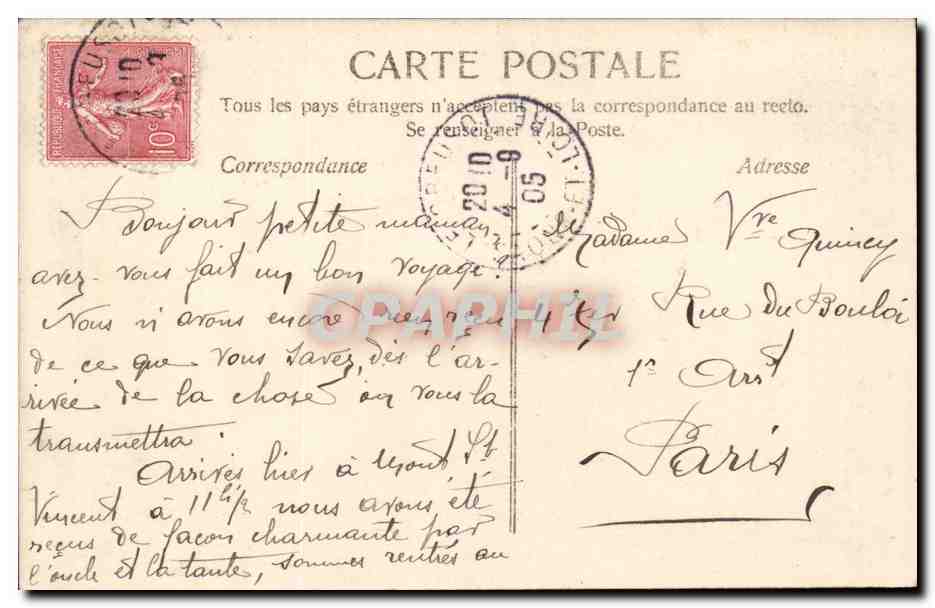 CARTE POSTALE
Tous les pays étrangers n'acceptent pas la correspondance au recto.
Se renseigner à la Poste.
Correspondance
Adresse
REPUBLIQUE FRANÇAISE
10 c
20 10
4 - 9
05
LOIRE
CPAPHIL
Bonjour petite maman
avez-vous fait un bon voyage.
Nous n'avons encore rien reçu
de ce que vous savez, dès l'ar-
rivée de la chose on vous la
transmettra.
Arrivés hier à Mont St
Vincent à 11h 1/2 nous avons été
reçus de façon charmante par
l'oncle et la tante, sommes rentrés au
Madame Vve Quincy
4 Rue Du Bouloi
1er Arrt
Paris